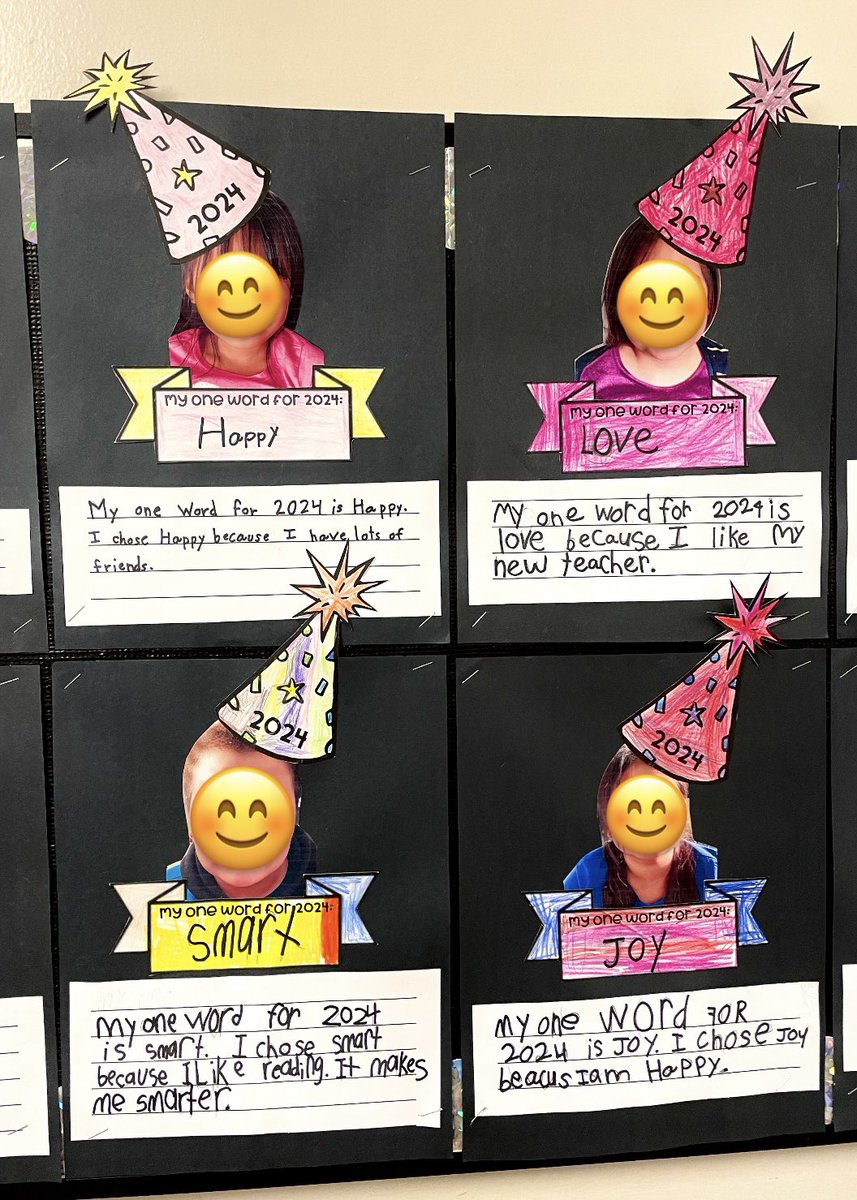 2024
My one word for 2024:
Happy
My one word for 2024 is Happy.
I chose Happy because I have lots of
friends.
2024
My one word for 2024:
Love
My one word for 2024 is
love because I like My
new teacher.
2024
My one word for 2024:
Smart
My one word for 2024
is smart. I chose smart
because I Like reading. It makes
me smarter.
2024
My one word for 2024:
JOY
My one WORD FOR
2024 is JOY. I chose JOY
beacus I am HaPPY.